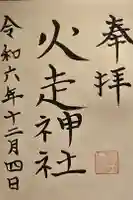 奉拝
火走神社
令和六年十二月四日